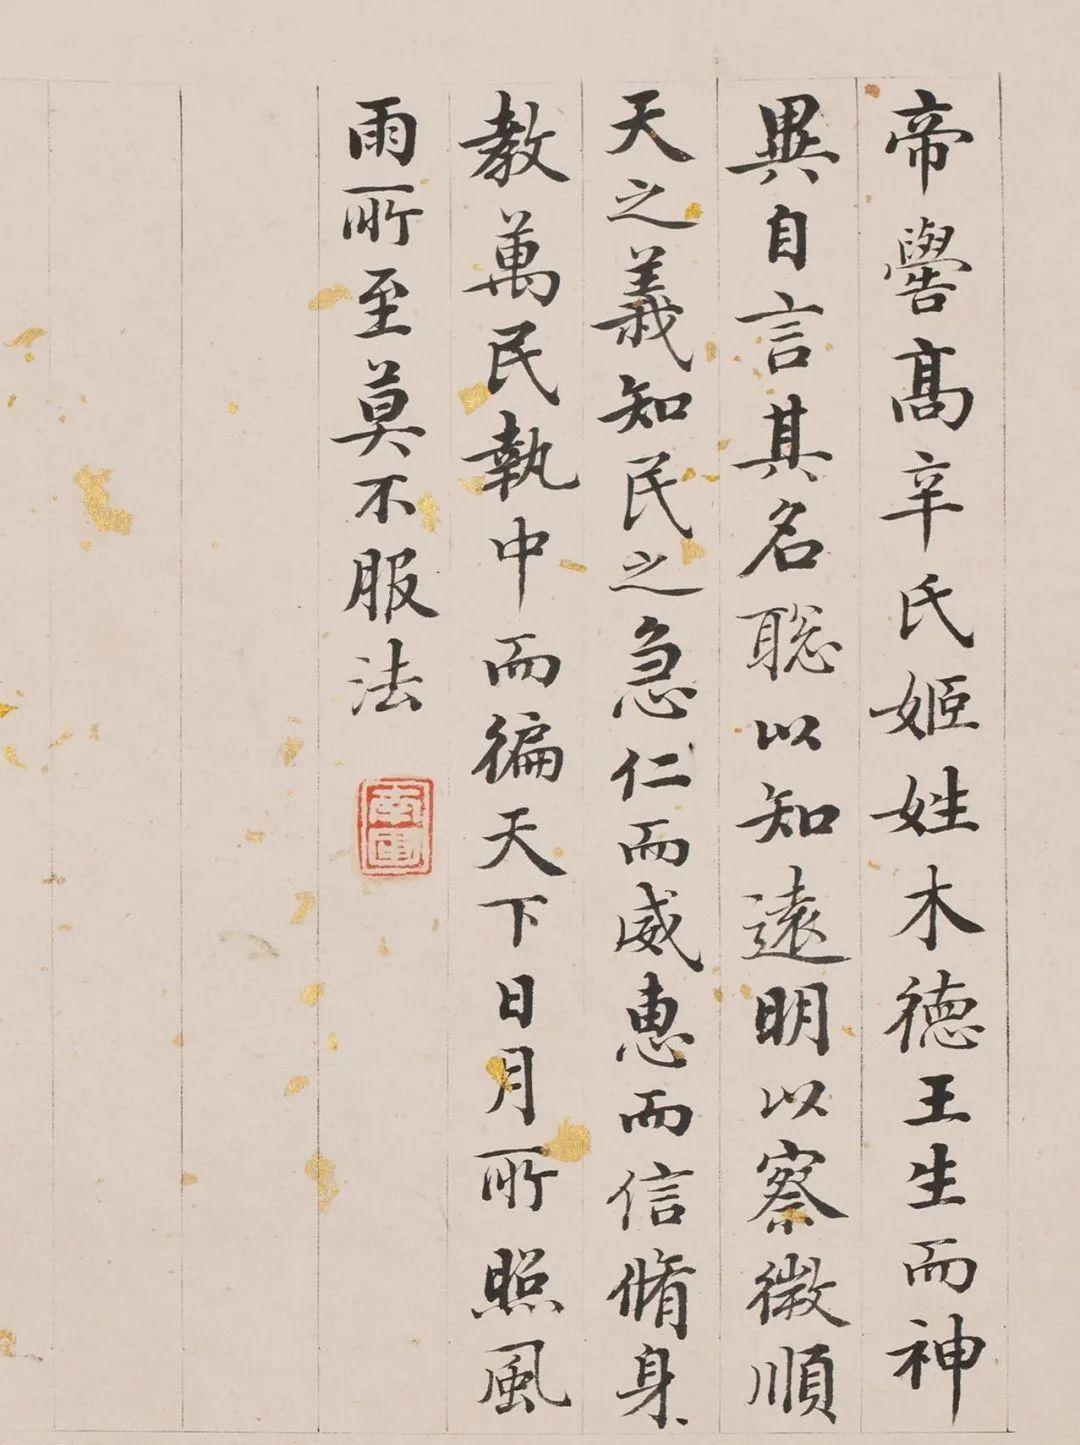 帝嚳髙辛氏姬姓木德王生而神
異自言其名聡以知遠明以察微順
天之義知民之急仁而威惠而信脩身
教萬民執中而徧天下日月所照風
雨所至莫不服法